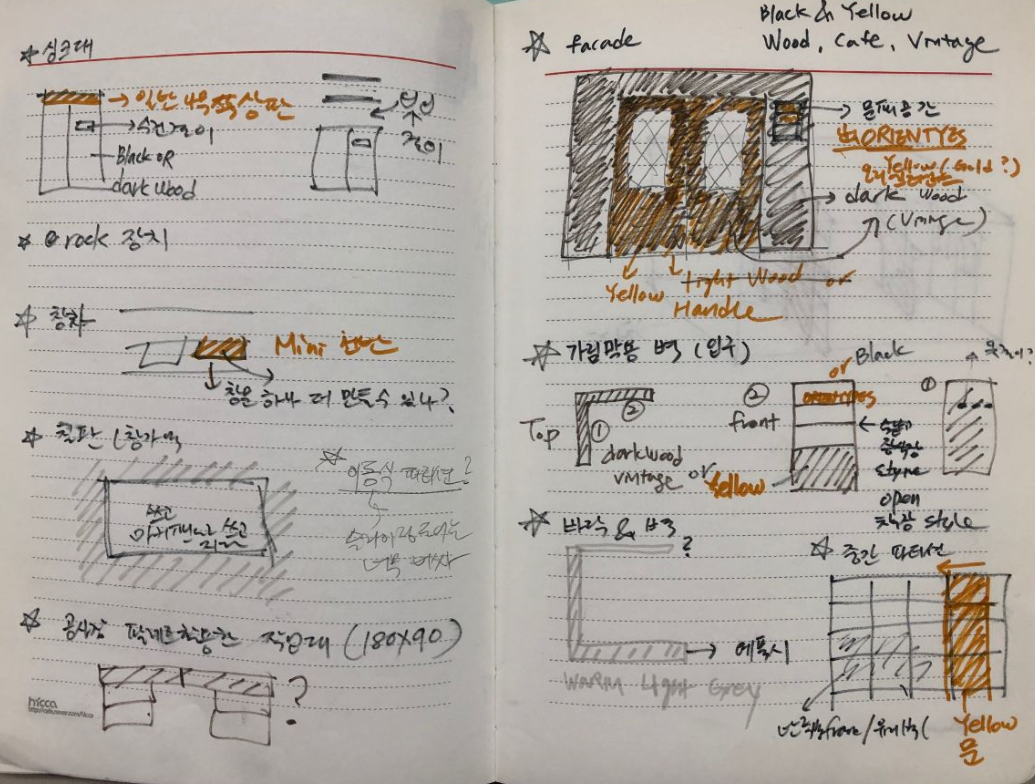 ☆ 싱크대
→ 일반 나무쪽상판
→ 수건걸이
Black OR
dark wood
걸이
☆ rock 장치
☆ 창가
Mini 캔버스
창문 하나 더 만들 수 있나?
☆ 칠판 (창가
☆ 이동식 파티션?
쓰고
쓰고
☆ 공사장 팔레트 활용한 작업대 (180X90)
?
micca
Black & Yellow
☆ facade
Wood, Cafe, Vintage
→ 문패공간
ORIENTYES
Yellow (Gold?)
→ dark wood
(Vintage)
Yellow
Light Wood or
Handle
☆ 가림막용 벽 (입구)
or Black
Top
①
②
darkwood
vintage or
Yellow
②
front
ORIENTYES
style
open
style
①
☆ 바닥 & 벽
?
→ 에폭시
Warm Light Grey
☆ 중간 파티션
frame/유리벽(
Yellow
문